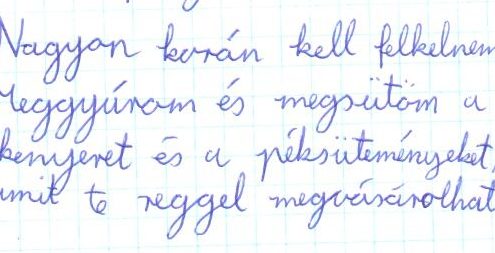 Nagyon korán kell felkelnem
Meggyúrom és megsütöm a
kenyeret és a péksüteményeket,
amit te reggel megvásárolhat